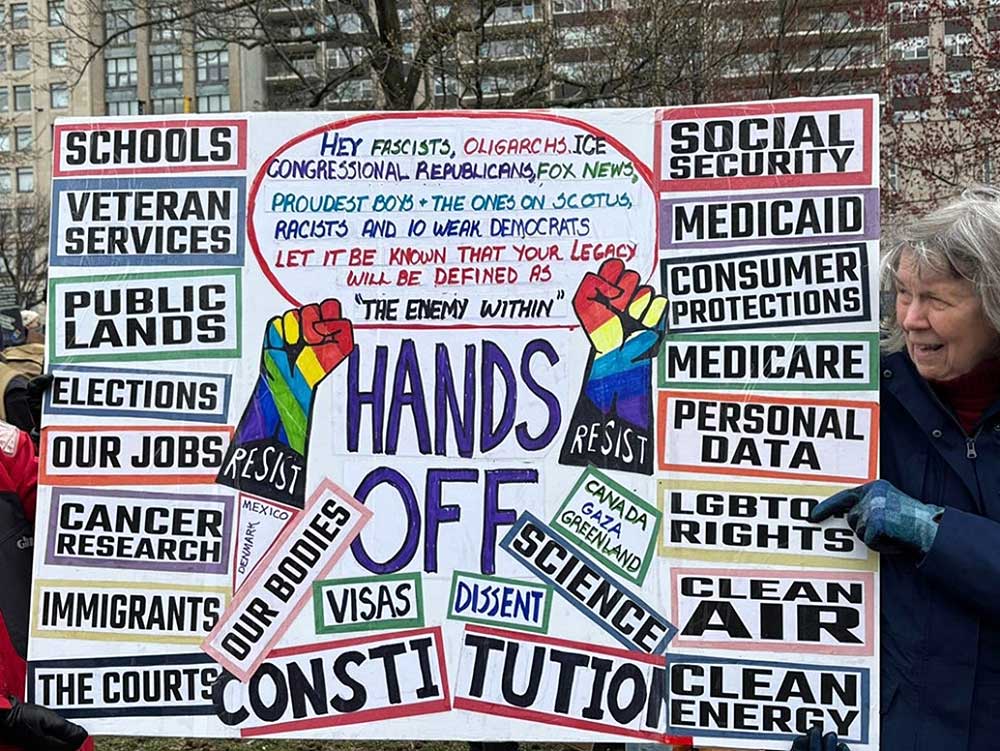 SCHOOLS
VETERAN
SERVICES
PUBLIC
LANDS
ELECTIONS
OUR JOBS
CANCER
RESEARCH
IMMIGRANTS
THE COURTS
HEY FASCISTS, OLIGARCHS. ICE
CONGRESSIONAL REPUBLICANS, FOX NEWS,
PROUDEST BOYS + THE ONES ON SCOTUS,
RACISTS AND 10 WEAK DEMOCRATS
LET IT BE KNOWN THAT YOUR LEGACY
WILL BE DEFINED AS
"THE ENEMY WITHIN"
HANDS
OFF
RESIST
RESIST
MEXICO
DENMARK
OUR BODIES
CANADA
GAZA
GREENLAND
SCIENCE
VISAS
DISSENT
CONSTITUTION
SOCIAL
SECURITY
MEDICAID
CONSUMER
PROTECTIONS
MEDICARE
PERSONAL
DATA
LGBTQ
RIGHTS
CLEAN
AIR
CLEAN
ENERGY